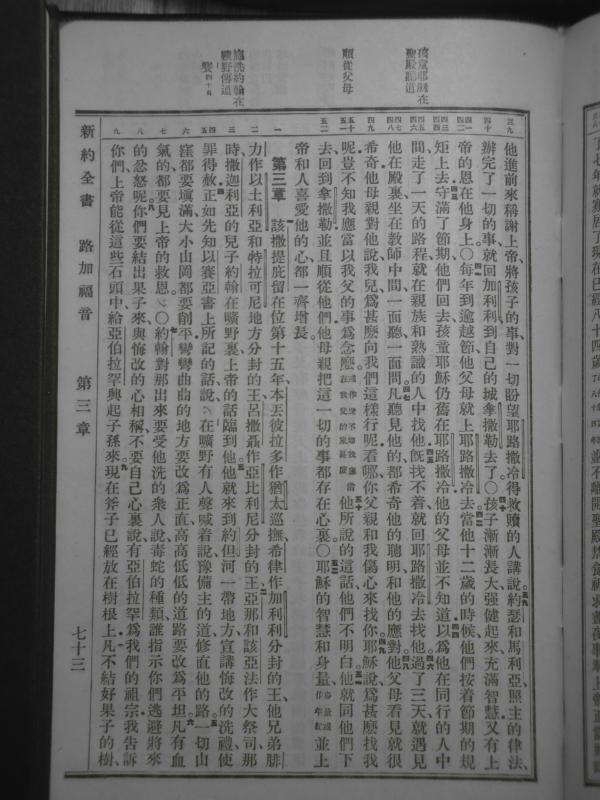 孩童耶穌在
聖殿聽道
順從父母
施洗約翰在
曠野傳道
三九 他進前來稱謝上帝、將孩子的事、對一切盼望耶路撒冷得救贖的人講說。約瑟和馬利亞、照主的律法、
四十 辦完了一切的事、就回加利利、到自己的城拿撒勒去了。○孩子漸漸長大、強健起來、充滿智慧、又有上
四一 帝的恩在他身上。○每年到逾越節、他父母就上耶路撒冷去。當他十二歲的時候、他們按着節期的規
矩上去、守滿了節期、他們回去、孩童耶穌仍舊在耶路撒冷、他的父母並不知道、以爲他在同行的人中
間、走了一天的路程、就在親族和熟識的人中找他、旣找不着、就回耶路撒冷去找他。過了三天、就遇見
他在殿裏、坐在教師中間、一面聽、一面問。凡聽見他的、都希奇他的聰明、和他的應對。他父母看見就很
四九 希奇、他母親對他說、我兒爲甚麽向我們這樣行呢、看哪、你父親和我傷心來找你。耶穌說、爲甚麽找我
呢、豈不知我應當以我父的事爲念麽。他所說的這話、他們不明白。他就同他們下
五二 去、回到拿撒勒、並且順從他們、他母親把這一切的事都存在心裏。○耶穌的智慧和身量、並上
帝和人喜愛他的心、都一齊增長。
一 第三章 該撒提庇留在位第十五年、本丟彼拉多作猶太巡撫、希律作加利利分封的王、他兄弟腓
二 力作以土利亞和特拉可尼地方分封的王、呂撒聶作亞比利尼分封的王、亞那和該亞法作大祭司、那
三 時、撒迦利亞的兒子約翰在曠野裏、上帝的話臨到他。他就來到約但河一帶地方、宣講悔改的洗禮、使
罪得赦。正如先知以賽亞書上所記的話說、在曠野有人聲喊着說、豫備主的道、修直他的路。一切山
六 窪都要塡滿、大小山岡都要削平、彎彎曲曲的地方要改爲正直、高高低低的道路要改爲平坦。凡有血
七 氣的、都要見上帝的救恩。○約翰對那出來要受他洗的衆人說、毒蛇的種類、誰指示你們逃避將來
八 的忿怒呢。你們要結出果子來、與悔改的心相稱、不要自己心裏說、有亞伯拉罕爲我們的祖宗、我告訴
九 你們、上帝能從這些石頭中、給亞伯拉罕興起子孫來。現在斧子已經放在樹根上、凡不結好果子的樹、
新約全書 路加福音 第三章 七十三